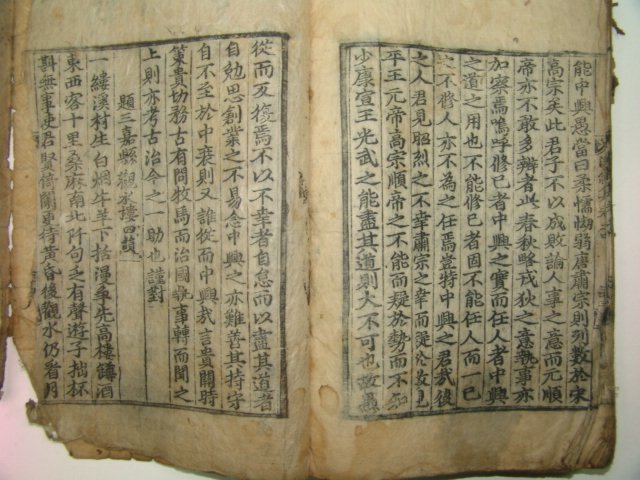 能中興愚當曰柔懦怯弱唐肅宗則列數於宋
高宗矣此君子不以成敗論人事之意而元順
帝亦不敢多辨者此春秋略戎狄之意執事亦
加察焉嗚呼修己者中興之實而任人者中興
之道之用也不能修己者固不能任人而一已
之不修人亦不為之任焉豈特中興之君哉後
之人君見昭烈之不幸肅宗之幸而
平王元帝高宗順帝之不能而疑於勢而不知
少康宣王光武之能盡其道則大不可也故愚
從而反復焉不以不幸者自怠而以盡其道者
自勉思創業之不易念中興之亦難善其持守
自不至於中衰則又誰從而中興哉言貴關時
策貴切務古有問牧馬而治國執事轉而聞之
上則亦考古治今之一助也謹對
題三嘉縣觀水樓四韻
一縷溪村生白烟牛羊下括湿爭先高樓罇酒
東西客十里桑麻南北阡句乏有聲遊子拙杯
斟無事使君賢倚闌更待黃昏後觀水仍看月